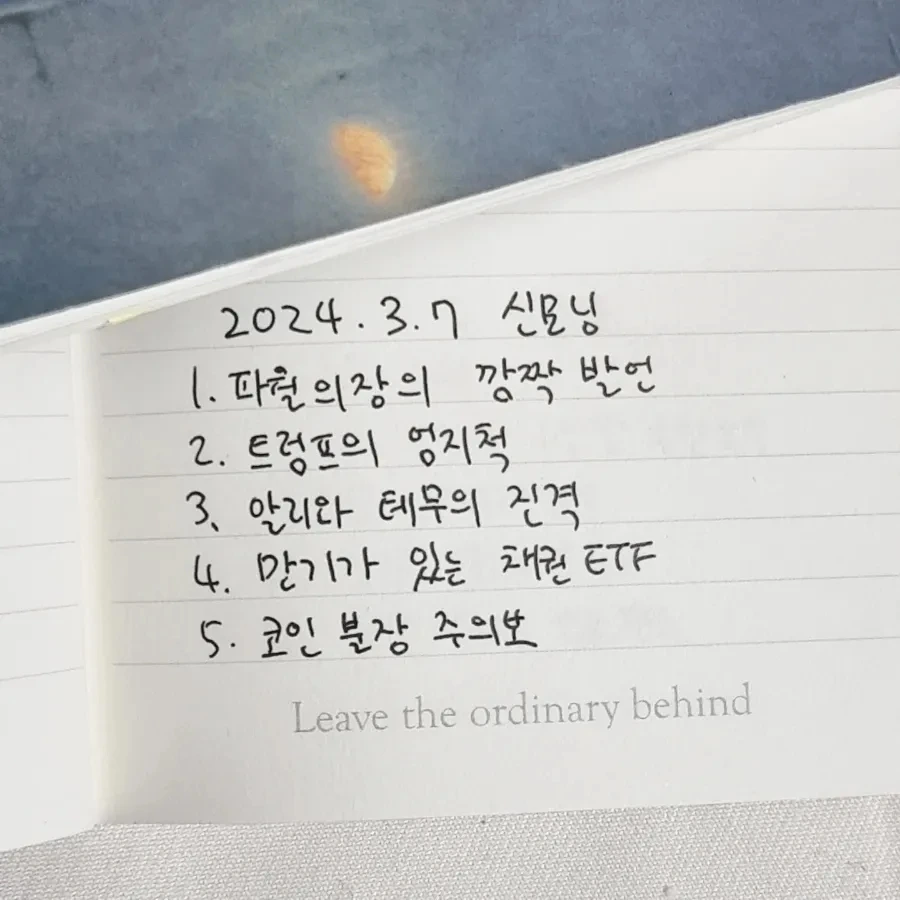 2024.3.7 신모닝
1. 파월의장의 깜짝 발언
2. 트럼프의 엄지척
3. 알리와 테무의 진격
4. 만기가 있는 채권 ETF
5. 코인 불장 주의보
Leave the ordinary behind